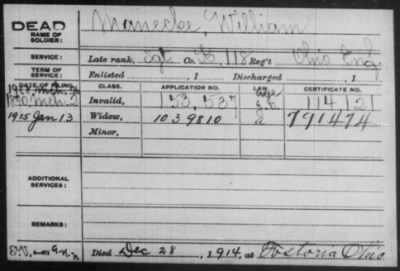 DEAD
NAME OF SOLDIER: Manecke, William
SERVICE: Late rank, Sgt Co. B, 118 Reg't Ohio Inf.
TERM OF SERVICE: Enlisted , 1 Discharged , 1
DATE OF FILING. CLASS. APPLICATION NO. LAW. CERTIFICATE NO.
1880 Mch. 2 Invalid, 153,537 114121
1915 Jan 13 Widow, 1039810 791474
Minor,
ADDITIONAL SERVICES:
REMARKS:
Died Dec 28 , 1914, at Fostoria Ohio